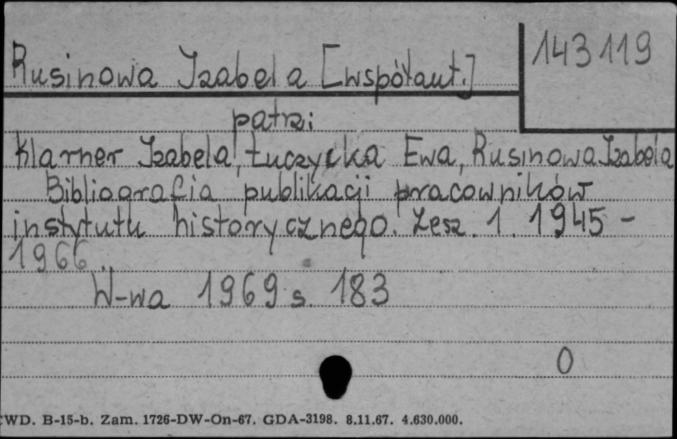 Rusinowa Izabela [współaut.]
143119
patrz:
Klarner Izabela, Łuczycka Ewa, Rusinowa Izabela
Bibliografia publikacji pracowników
instytutu historycznego. Zesz. 1. 1945 -
1966
W-wa 1969 s. 183
0
CWD. B-15-b. Zam. 1726-DW-On-67. GDA-3198. 8.11.67. 4.630.000.